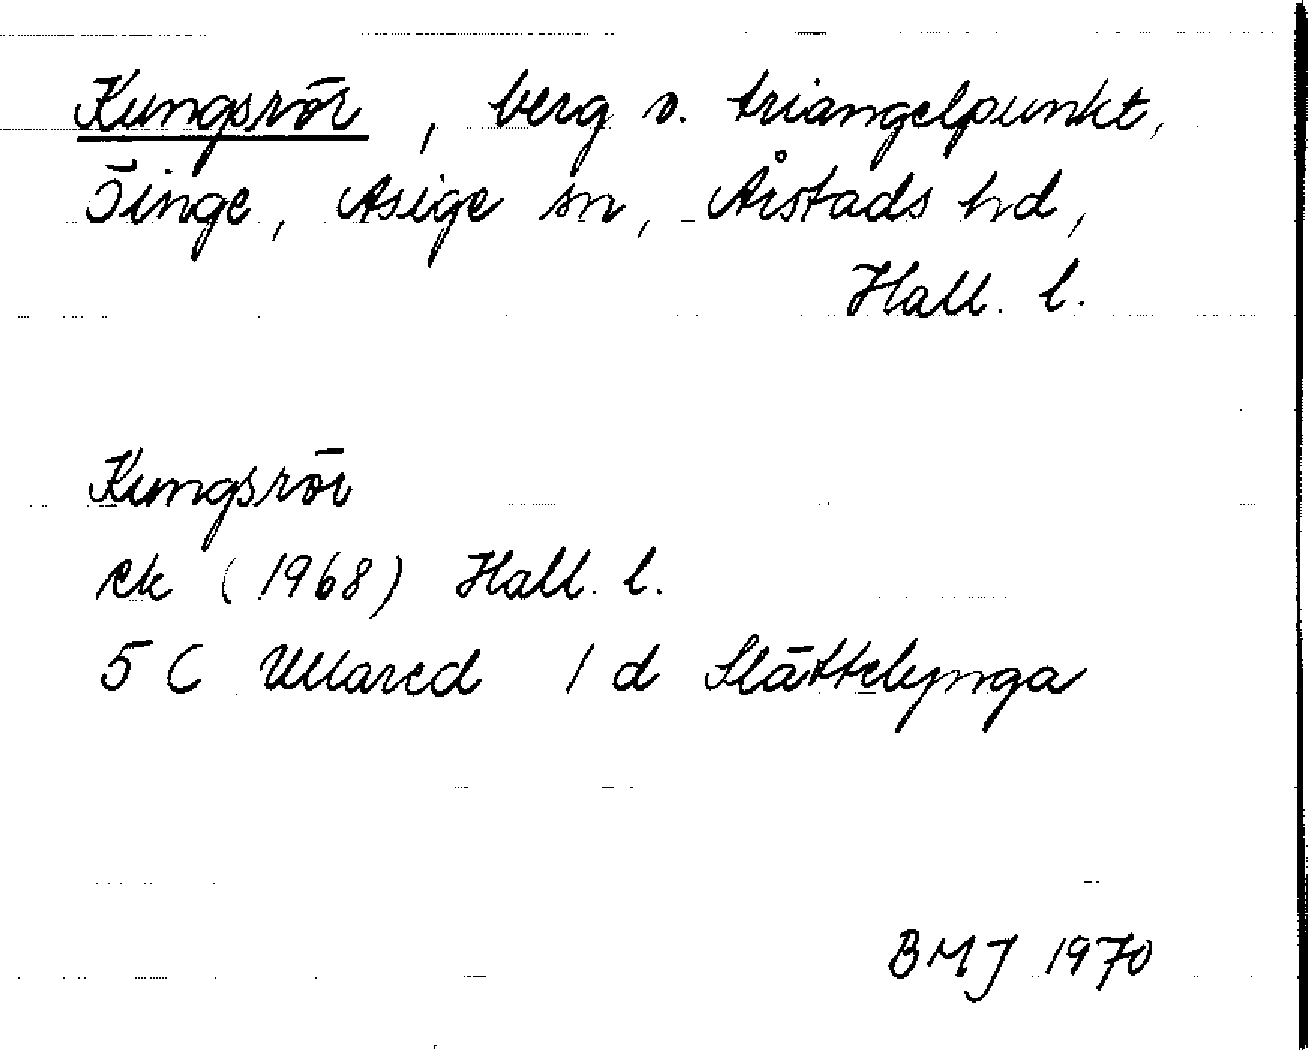 Kungsrör, berg o. triangelpunkt,
Öinge, Asige sn, Årstads hd,
Hall. l.
Kungsrör
ek (1968) Hall. l.
5 C Ullared 1 d Slättelynga
BMJ 1970